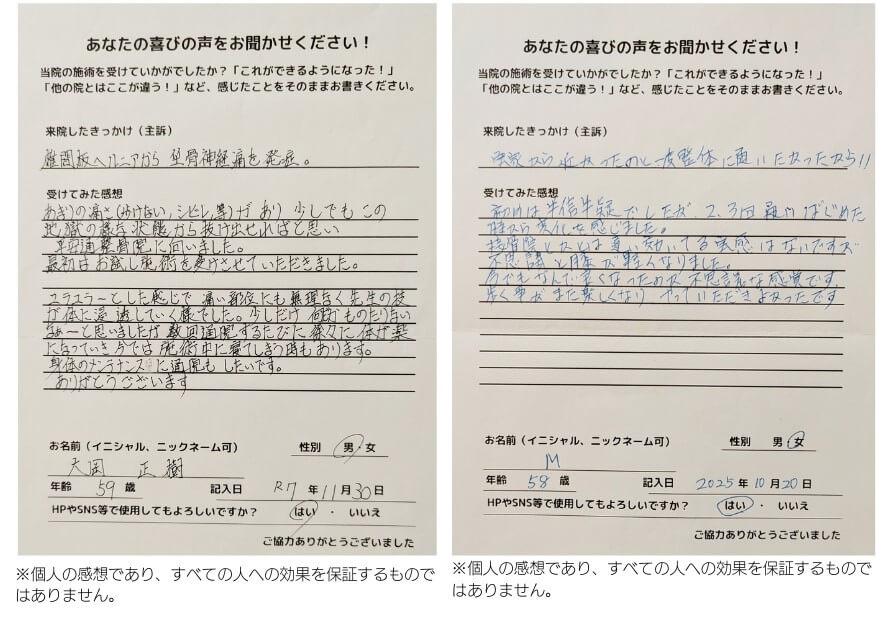 あなたの喜びの声をお聞かせください！
当院の施術を受けていかがでしたか？「これができるようになった！」
「他の院とはここが違う！」など、感じたことをそのままお書きください。
来院したきっかけ（主訴）
椎間板ヘルニアから坐骨神経痛を発症。
受けてみた感想
あまりの痛さ(歩けない,シビレ,等)があり 少しでもこの
地獄の様な状態から抜け出せればと思い
整骨院に伺いました。
最初はお試し施術を受けさせていただきました。
ユラユラ〜とした感じで痛い部位にも無理なく先生の技
が体に浸透していく様でした。少しだけ何故?ものたりない
なぁ〜と思いましたが数回通院するたびに徐々に体が楽
になっていき今では施術中に寝てしまう時もあります。
身体のメンテナンスに通院もしたいです。
ありがとうございます
お名前（イニシャル、ニックネーム可）
性別 男・女
大岡 正樹
年齢 59 歳
記入日 R7年11月30日
HPやSNS等で使用してもよろしいですか？ はい ・ いいえ
ご協力ありがとうございました
※個人の感想であり、すべての人への効果を保証するもので
はありません。
あなたの喜びの声をお聞かせください！
当院の施術を受けていかがでしたか？「これができるようになった！」
「他の院とはここが違う！」など、感じたことをそのままお書きください。
来院したきっかけ（主訴）
から近かったのと一度整体に通いたかったから!!
受けてみた感想
初めは半信半疑でしたが、2、3回通いはじめた
時から変化を感じました。
接骨院とはちがい効いてる実感はないですが
不思議と体が軽くなりました。
今でもなんで良くなったのか不思議な感覚です。
歩く事がまた楽しくなり やっていただきよかったです
お名前（イニシャル、ニックネーム可）
性別 男・女
M
年齢 58 歳
記入日 2025年10月20日
HPやSNS等で使用してもよろしいですか？ はい ・ いいえ
ご協力ありがとうございました
※個人の感想であり、すべての人への効果を保証するもので
はありません。